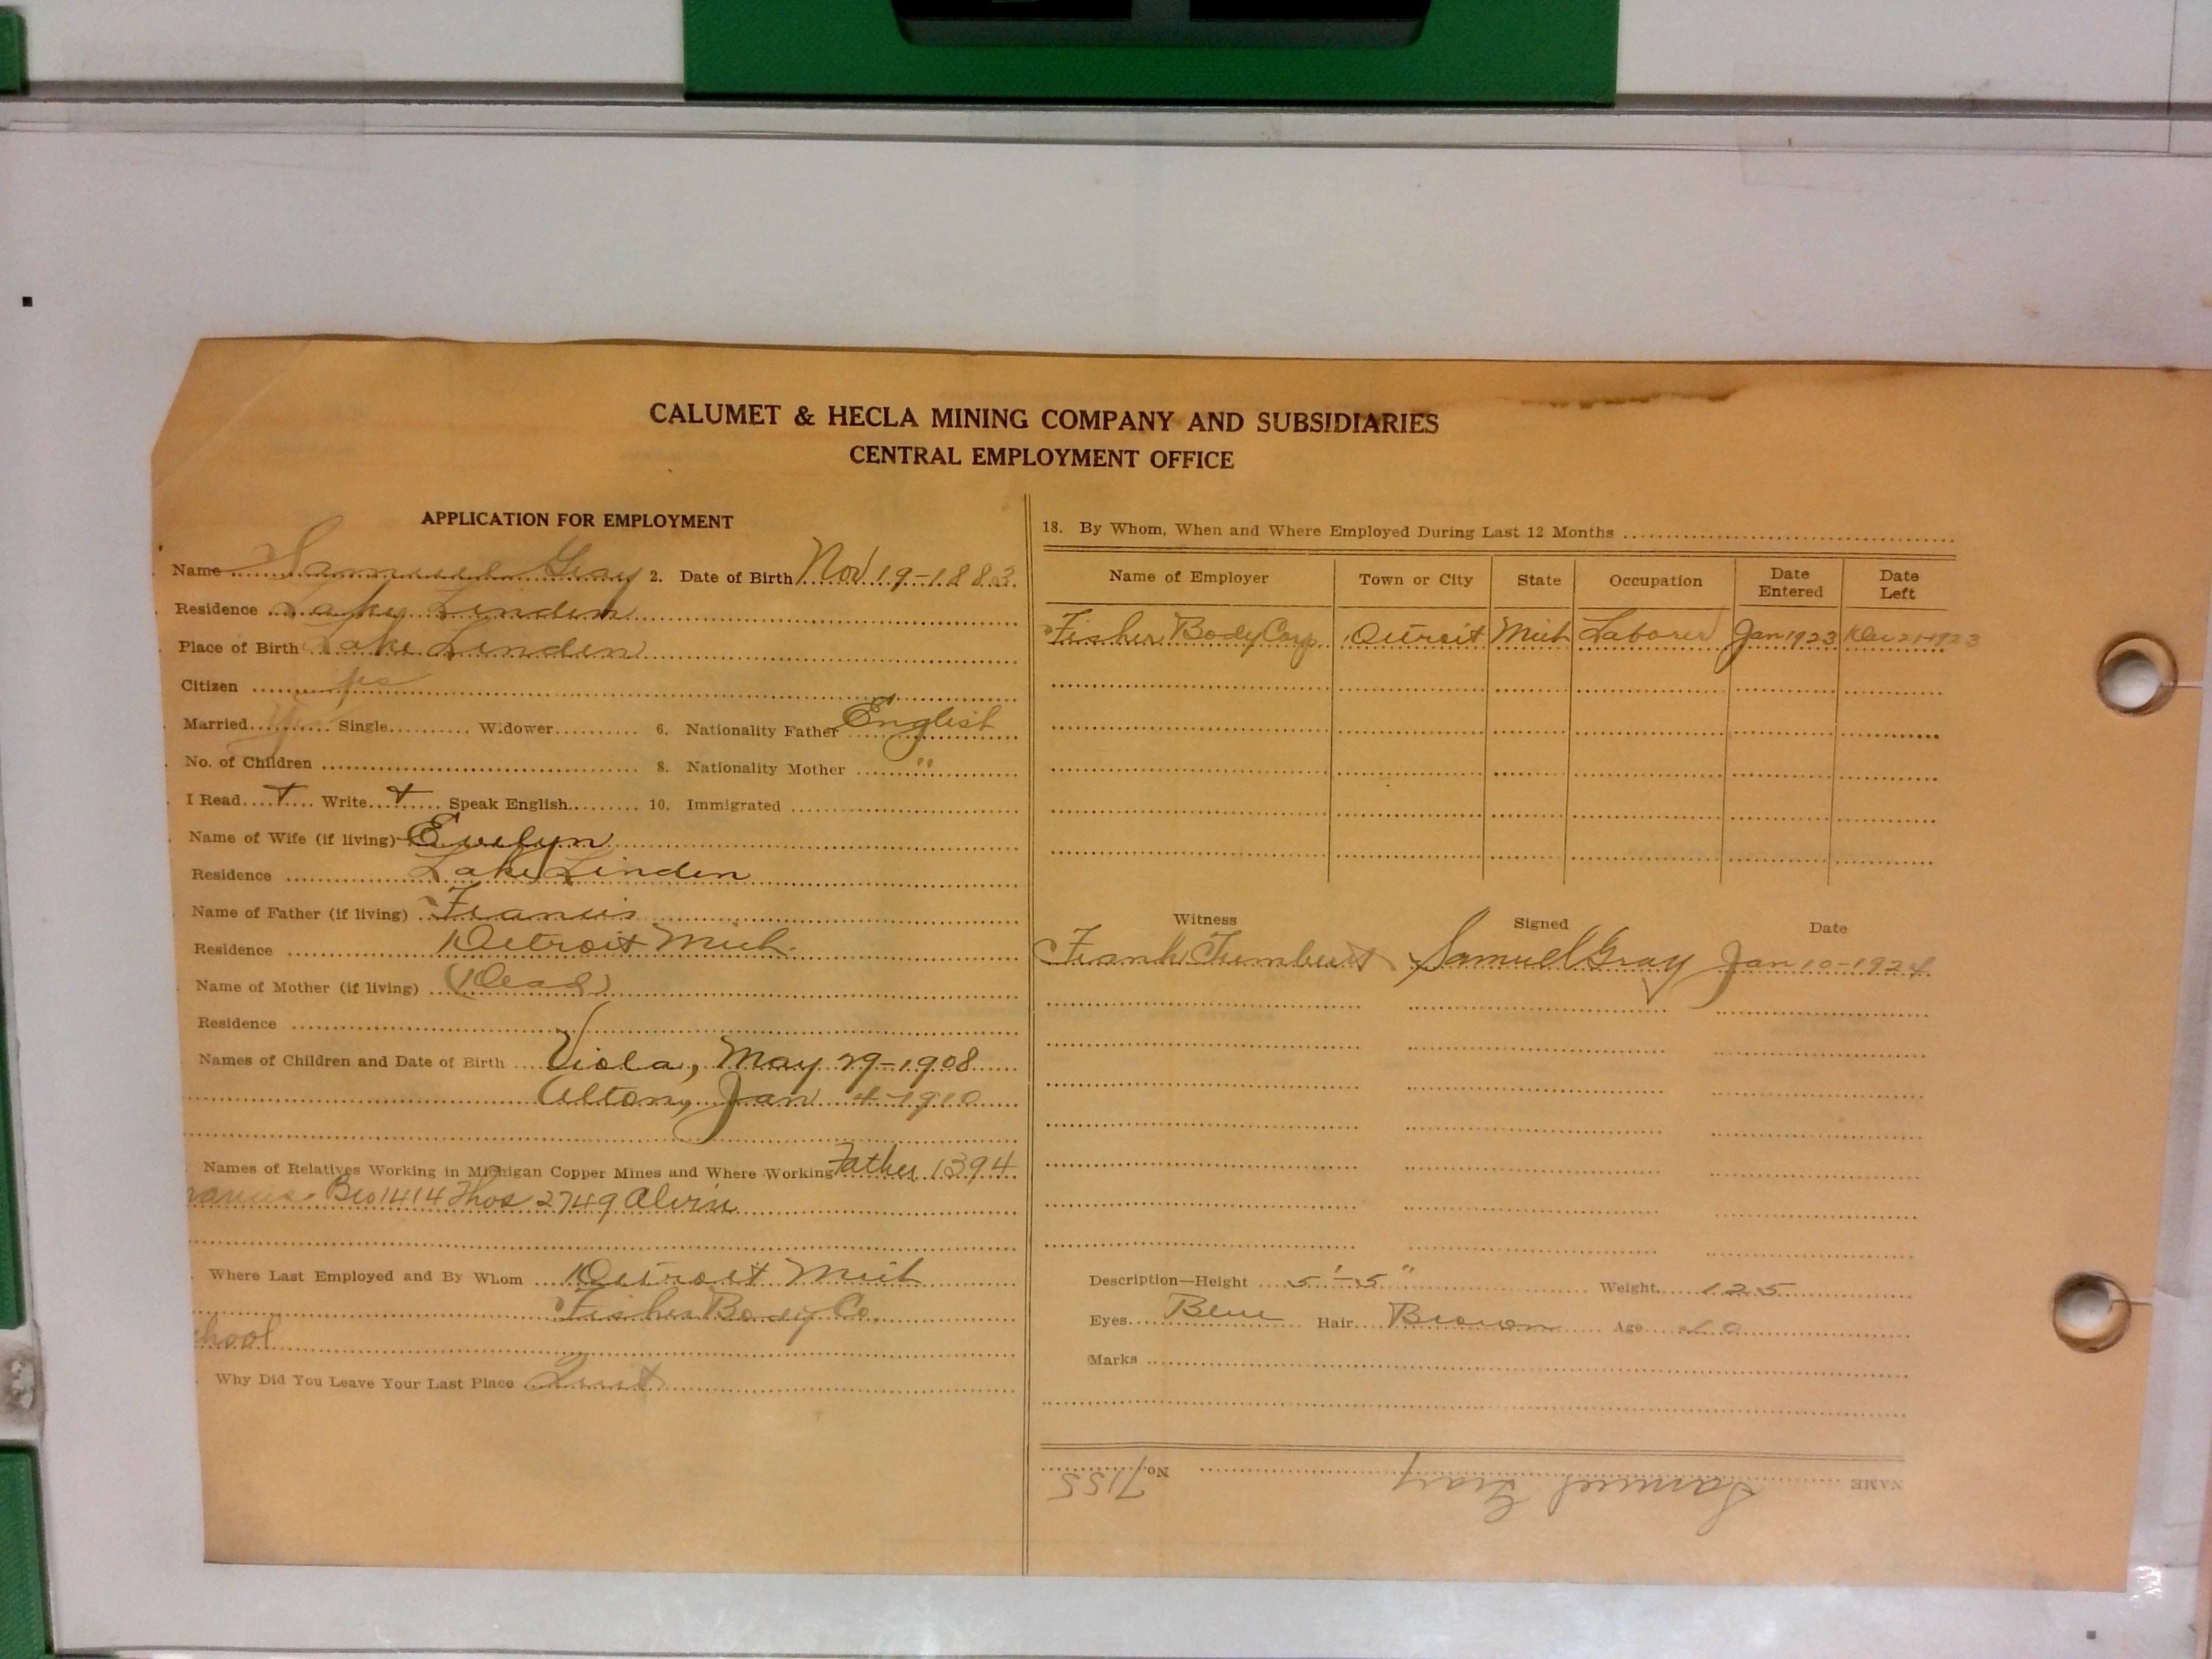 CALUMET & HECLA MINING COMPANY AND SUBSIDIARIES
CENTRAL EMPLOYMENT OFFICE
APPLICATION FOR EMPLOYMENT
Name Samuel Gray 2. Date of Birth Nov 19-1883
Residence Lake Linden
Place of Birth Lake Linden
Citizen yes
Married Yes Single Widower 6. Nationality Father English
No. of Children 8. Nationality Mother "
I Read + Write + Speak English 10. Immigrated
Name of Wife (if living) Evelyn
Residence Lake Linden
Name of Father (if living) Francis
Residence Detroit Mich.
Name of Mother (if living) (Dead)
Residence
Names of Children and Date of Birth Viola, May 29-1908
Alton, Jan 4-1910
Names of Relatives Working in Michigan Copper Mines and Where Working Father 1394
Bro 1414 Thos 2749 Alvin
Where Last Employed and By Whom Detroit Mich
Fisher Body Co.
chool
Why Did You Leave Your Last Place Quit
18. By Whom, When and Where Employed During Last 12 Months
Name of Employer Town or City State Occupation Date Entered Date Left
Fisher Body Corp. Detroit Mich Laborer Jan 1923 Dec 21-1923
Witness Signed Date
Frank Samuel Gray Jan 10-1924
Description—Height 5'-5" Weight 125
Eyes Blue Hair Brown Age 40
Marks
NAME Samuel Gray No. 7155